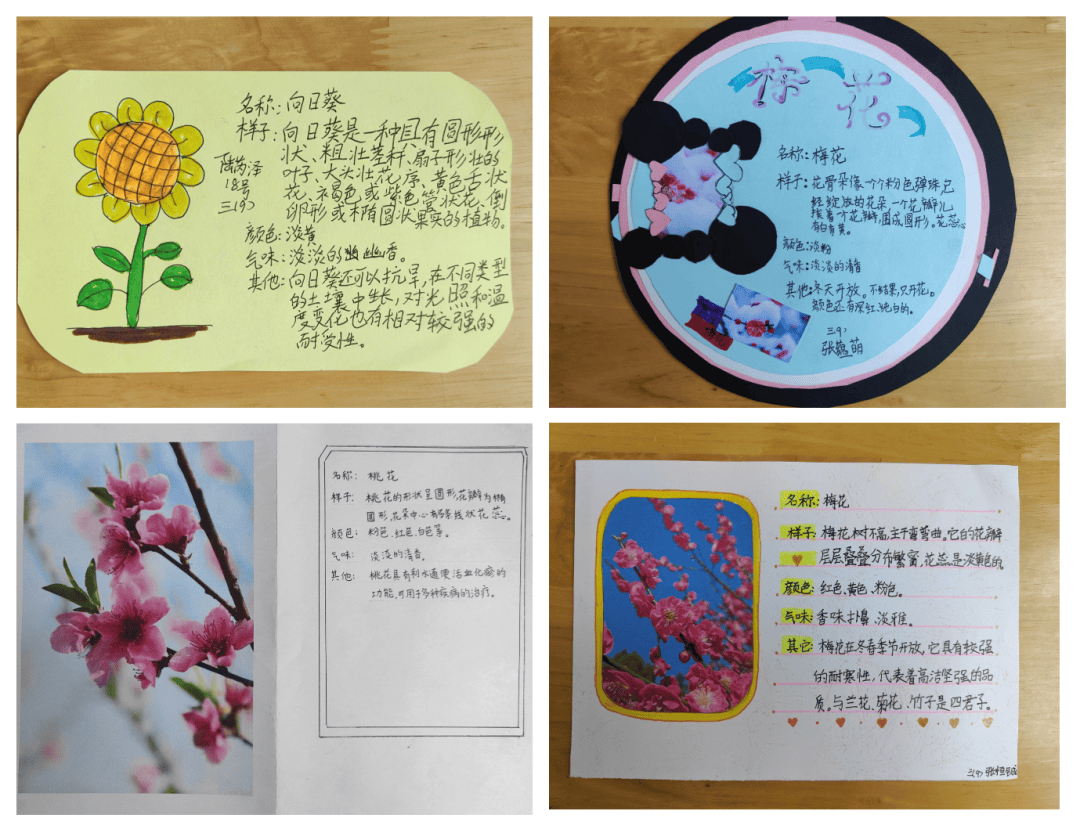 名称:向日葵
样子:向日葵是一种具有圆形形
状、粗壮茎秆、扇子形壮的
叶子、大头壮花序、黄色舌状
花、褐色或紫色管状花、倒
卵形或椭圆状果实的植物。
颜色:淡黄
气味:淡淡的幽香。
其他:向日葵还可以抗旱,在不同类型
的土壤中生长,对光照和温
度变化也有相对较强的
耐受性。
18号
三(9)
梅花
名称:梅花
样子:花骨朵像一个个粉色弹珠,已
经绽放的花朵一个花瓣儿
挨着一个花瓣,围成圆形。花蕊
有白有黄。
颜色:淡粉
气味:淡淡的清香
其他:冬天开放。不结果,只开花。
颜色还有深红、纯白的。
三(9)
张蕴萌
名称: 桃花
样子: 桃花的形状呈圆形,花瓣为椭
圆形,花朵中心有多条线状花蕊。
颜色: 粉色、红色、白色等。
气味: 淡淡的清香。
其他: 桃花具有利水通便活血化瘀的
功能,可用于多种疾病的治疗。
名称:梅花
样子:梅花树不高,主干弯弯曲。它的花瓣
层层叠叠分布繁富,花蕊是淡黄色的。
颜色:红色、黄色、粉色。
气味:香味扑鼻、淡雅。
其它:梅花在冬春季节开放,它具有较强
的耐寒性,代表着高洁坚强的品
质。与兰花、菊花、竹子是四君子。
三(9)